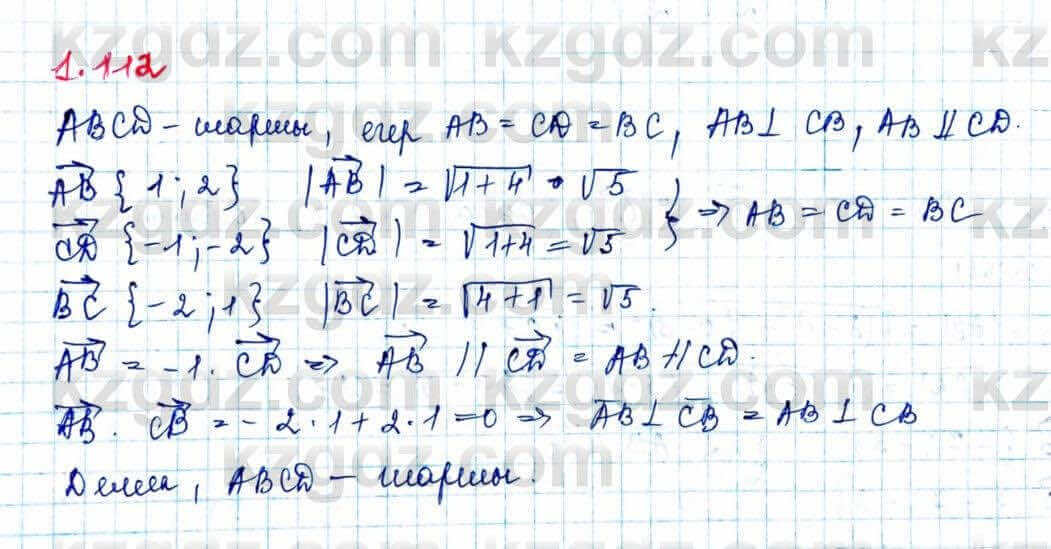 1.112
ABCD – шаршы, егер AB = CD = BC, AB ⊥ CB, AB // CD.
AB {1; 2} |AB| = √1+4 = √5
CD {-1; -2} |CD| = √1+4 = √5 } => AB = CD = BC
BC {-2; 1} |BC| = √4+1 = √5.
AB = -1 · CD => AB // CD = AB // CD.
AB · CB = -2·1+2·1=0 => AB ⊥ CB = AB ⊥ CB
Демек, ABCD – шаршы.